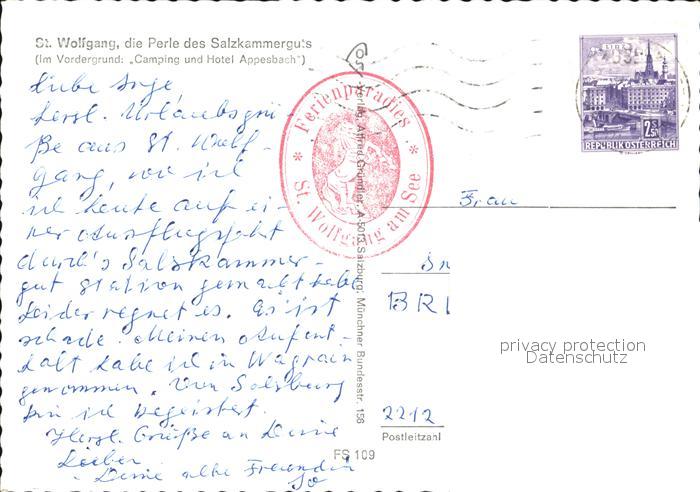 St. Wolfgang, die Perle des Salzkammerguts
(Im Vordergrund: „Camping und Hotel Appesbach")
Liebe Inge
Herzl. Urlaubsgrü-
ße aus St. Wolf-
gang, wo ich
ich heute auf ei-
ner Ausflugsfahrt
durch's Salzkammer-
gut Station gemacht habe
Leider regnet es. Es ist
schade. Meinen Aufent-
halt habe ich in Wagrain
genommen. Von Salzburg
bin ich begeistert.
Herzl. Grüße an Deine
Lieben
Deine alte Freundin
Ferienparadies
* St. Wolfgang am See *
Verlag: Alfred Gründler, A-5013 Salzburg, Münchner Bundesstr. 156
LINZ
2.50
REPUBLIK ÖSTERREICH
Frau
In
BRI
2212
Postleitzahl
FS 109
privacy protection
Datenschutz